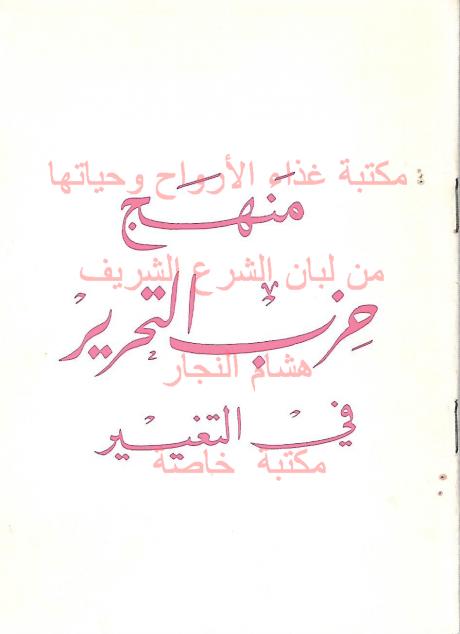 مكتبة غذاء الأرواح وحياتها
مَنهَج
من لبان الشرع الشريف
حِزب التحرير
هشام النجار
في التغيير
مكتبة خاصة